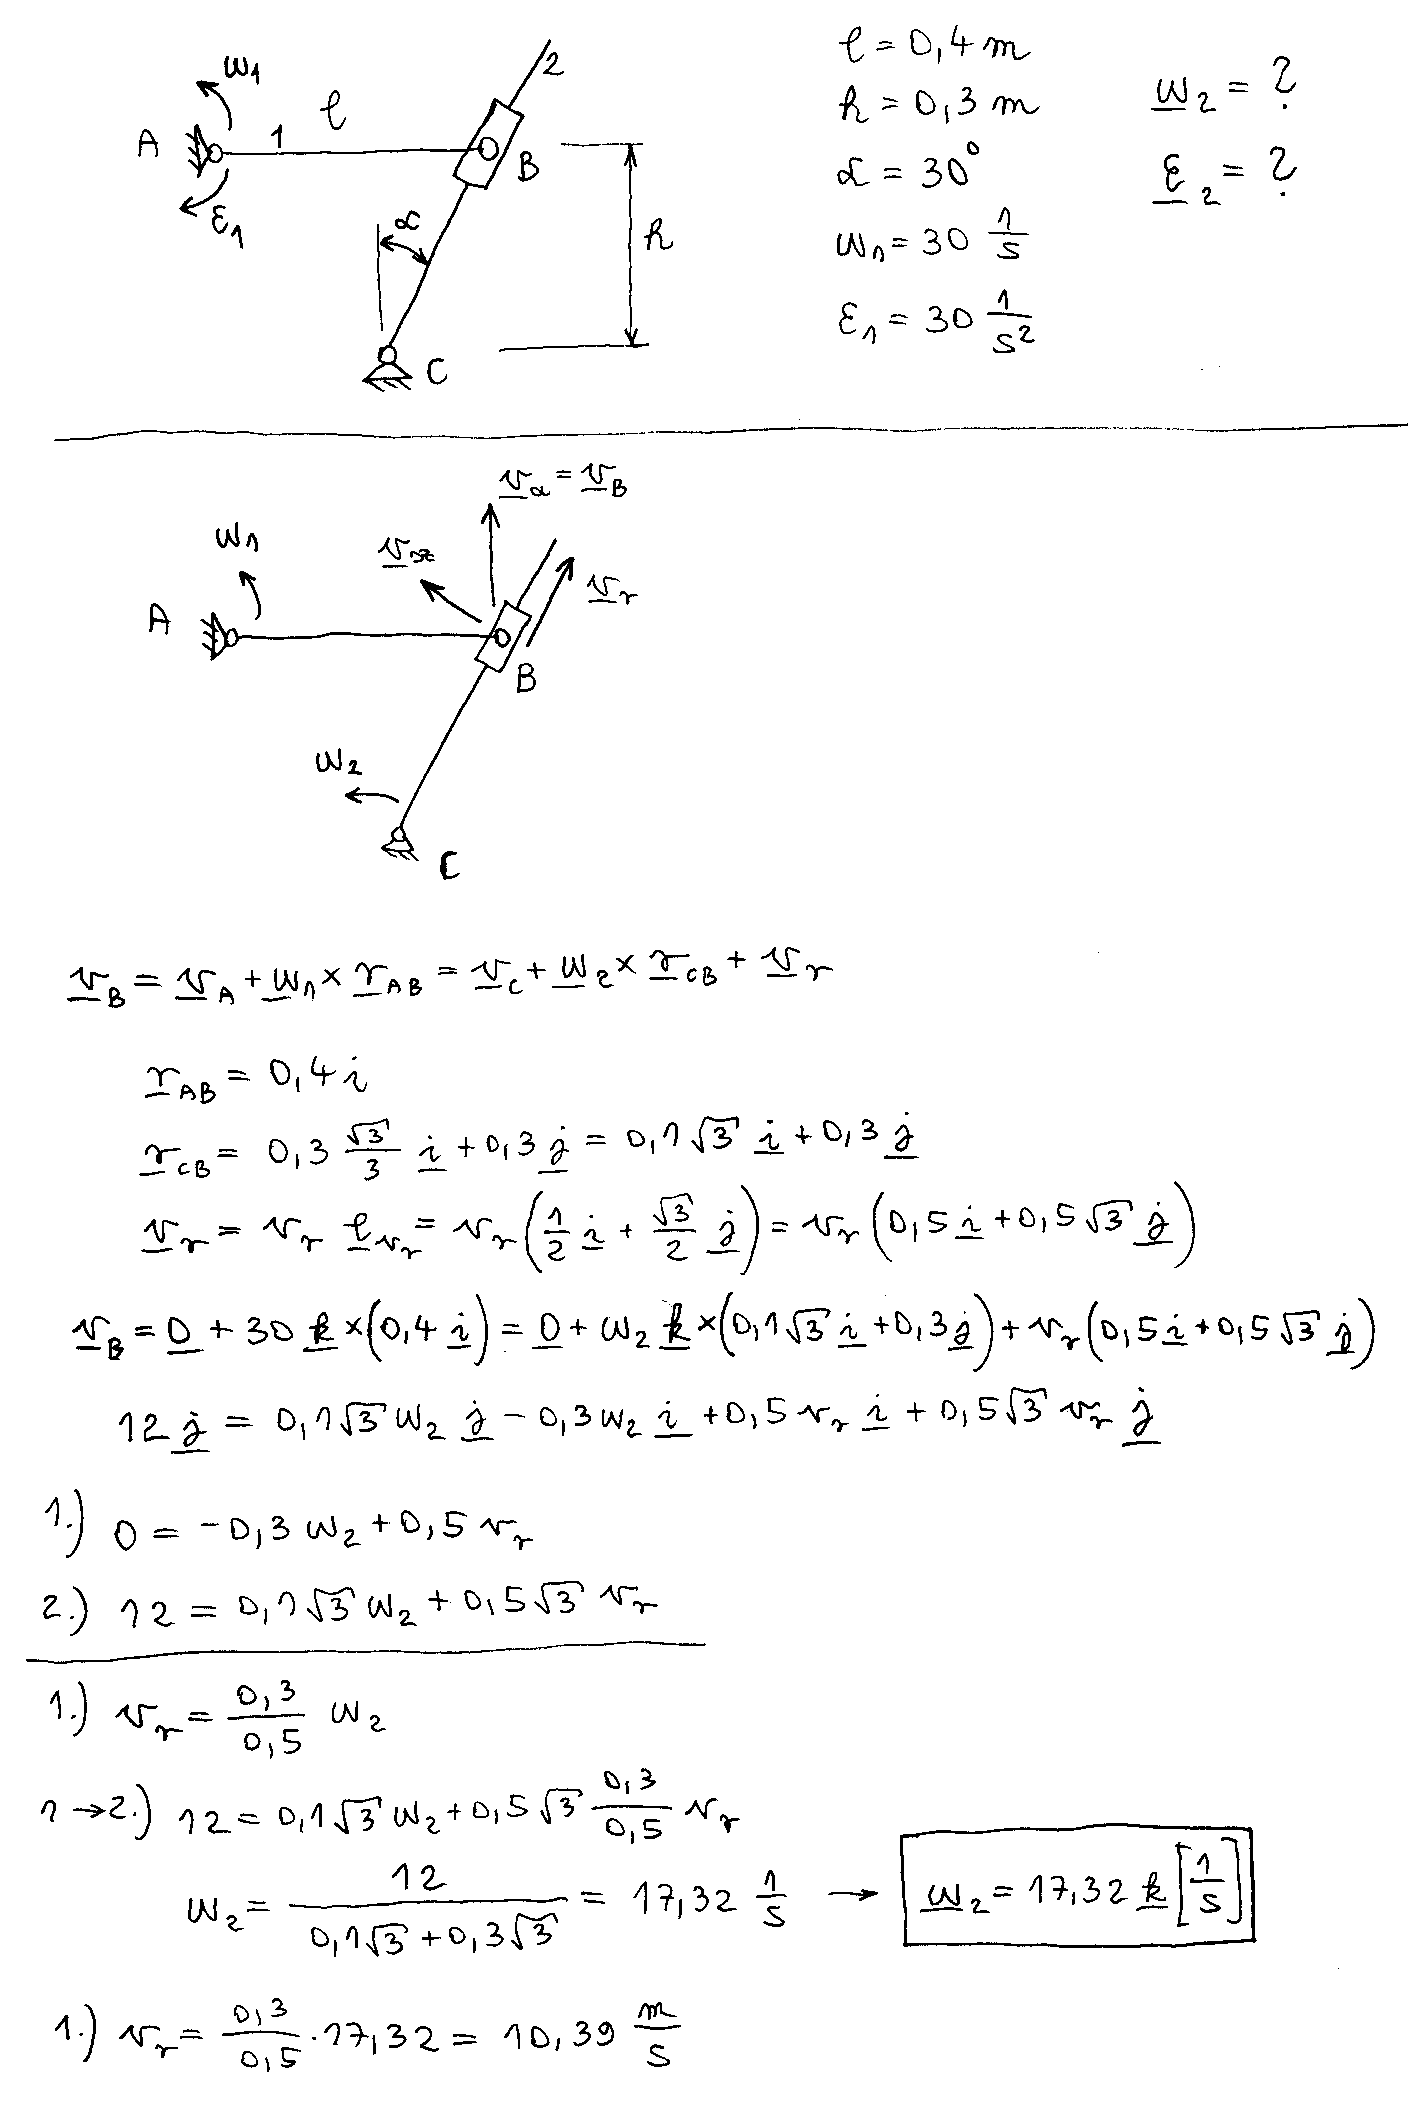 ω₁
2
l = 0,4 m
A
1
l
B
h = 0,3 m
ω₂ = ?
ε₁
α
h
α = 30°
ε₂ = ?
ω₁ = 30 1/s
C
ε₁ = 30 1/s²
v_a = v_B
ω₁
v_sz
v_r
A
B
ω₂
C
v_B = v_A + ω₁ × r_AB = v_C + ω₂ × r_CB + v_r
r_AB = 0,4 i
r_CB = 0,3 √3/3 i + 0,3 j = 0,1√3 i + 0,3 j
v_r = v_r e_vr = v_r (1/2 i + √3/2 j) = v_r (0,5 i + 0,5√3 j)
v_B = 0 + 30 k × (0,4 i) = 0 + ω₂ k × (0,1√3 i + 0,3 j) + v_r (0,5 i + 0,5√3 j)
12 j = 0,1√3 ω₂ j - 0,3 ω₂ i + 0,5 v_r i + 0,5√3 v_r j
1.) 0 = -0,3 ω₂ + 0,5 v_r
2.) 12 = 0,1√3 ω₂ + 0,5√3 v_r
1.) v_r = 0,3/0,5 ω₂
1→2.) 12 = 0,1√3 ω₂ + 0,5√3 0,3/0,5 v_r
ω₂ = 12/(0,1√3 + 0,3√3) = 17,32 1/s → ω₂ = 17,32 k [1/s]
1.) v_r = 0,3/0,5 · 17,32 = 10,39 m/s